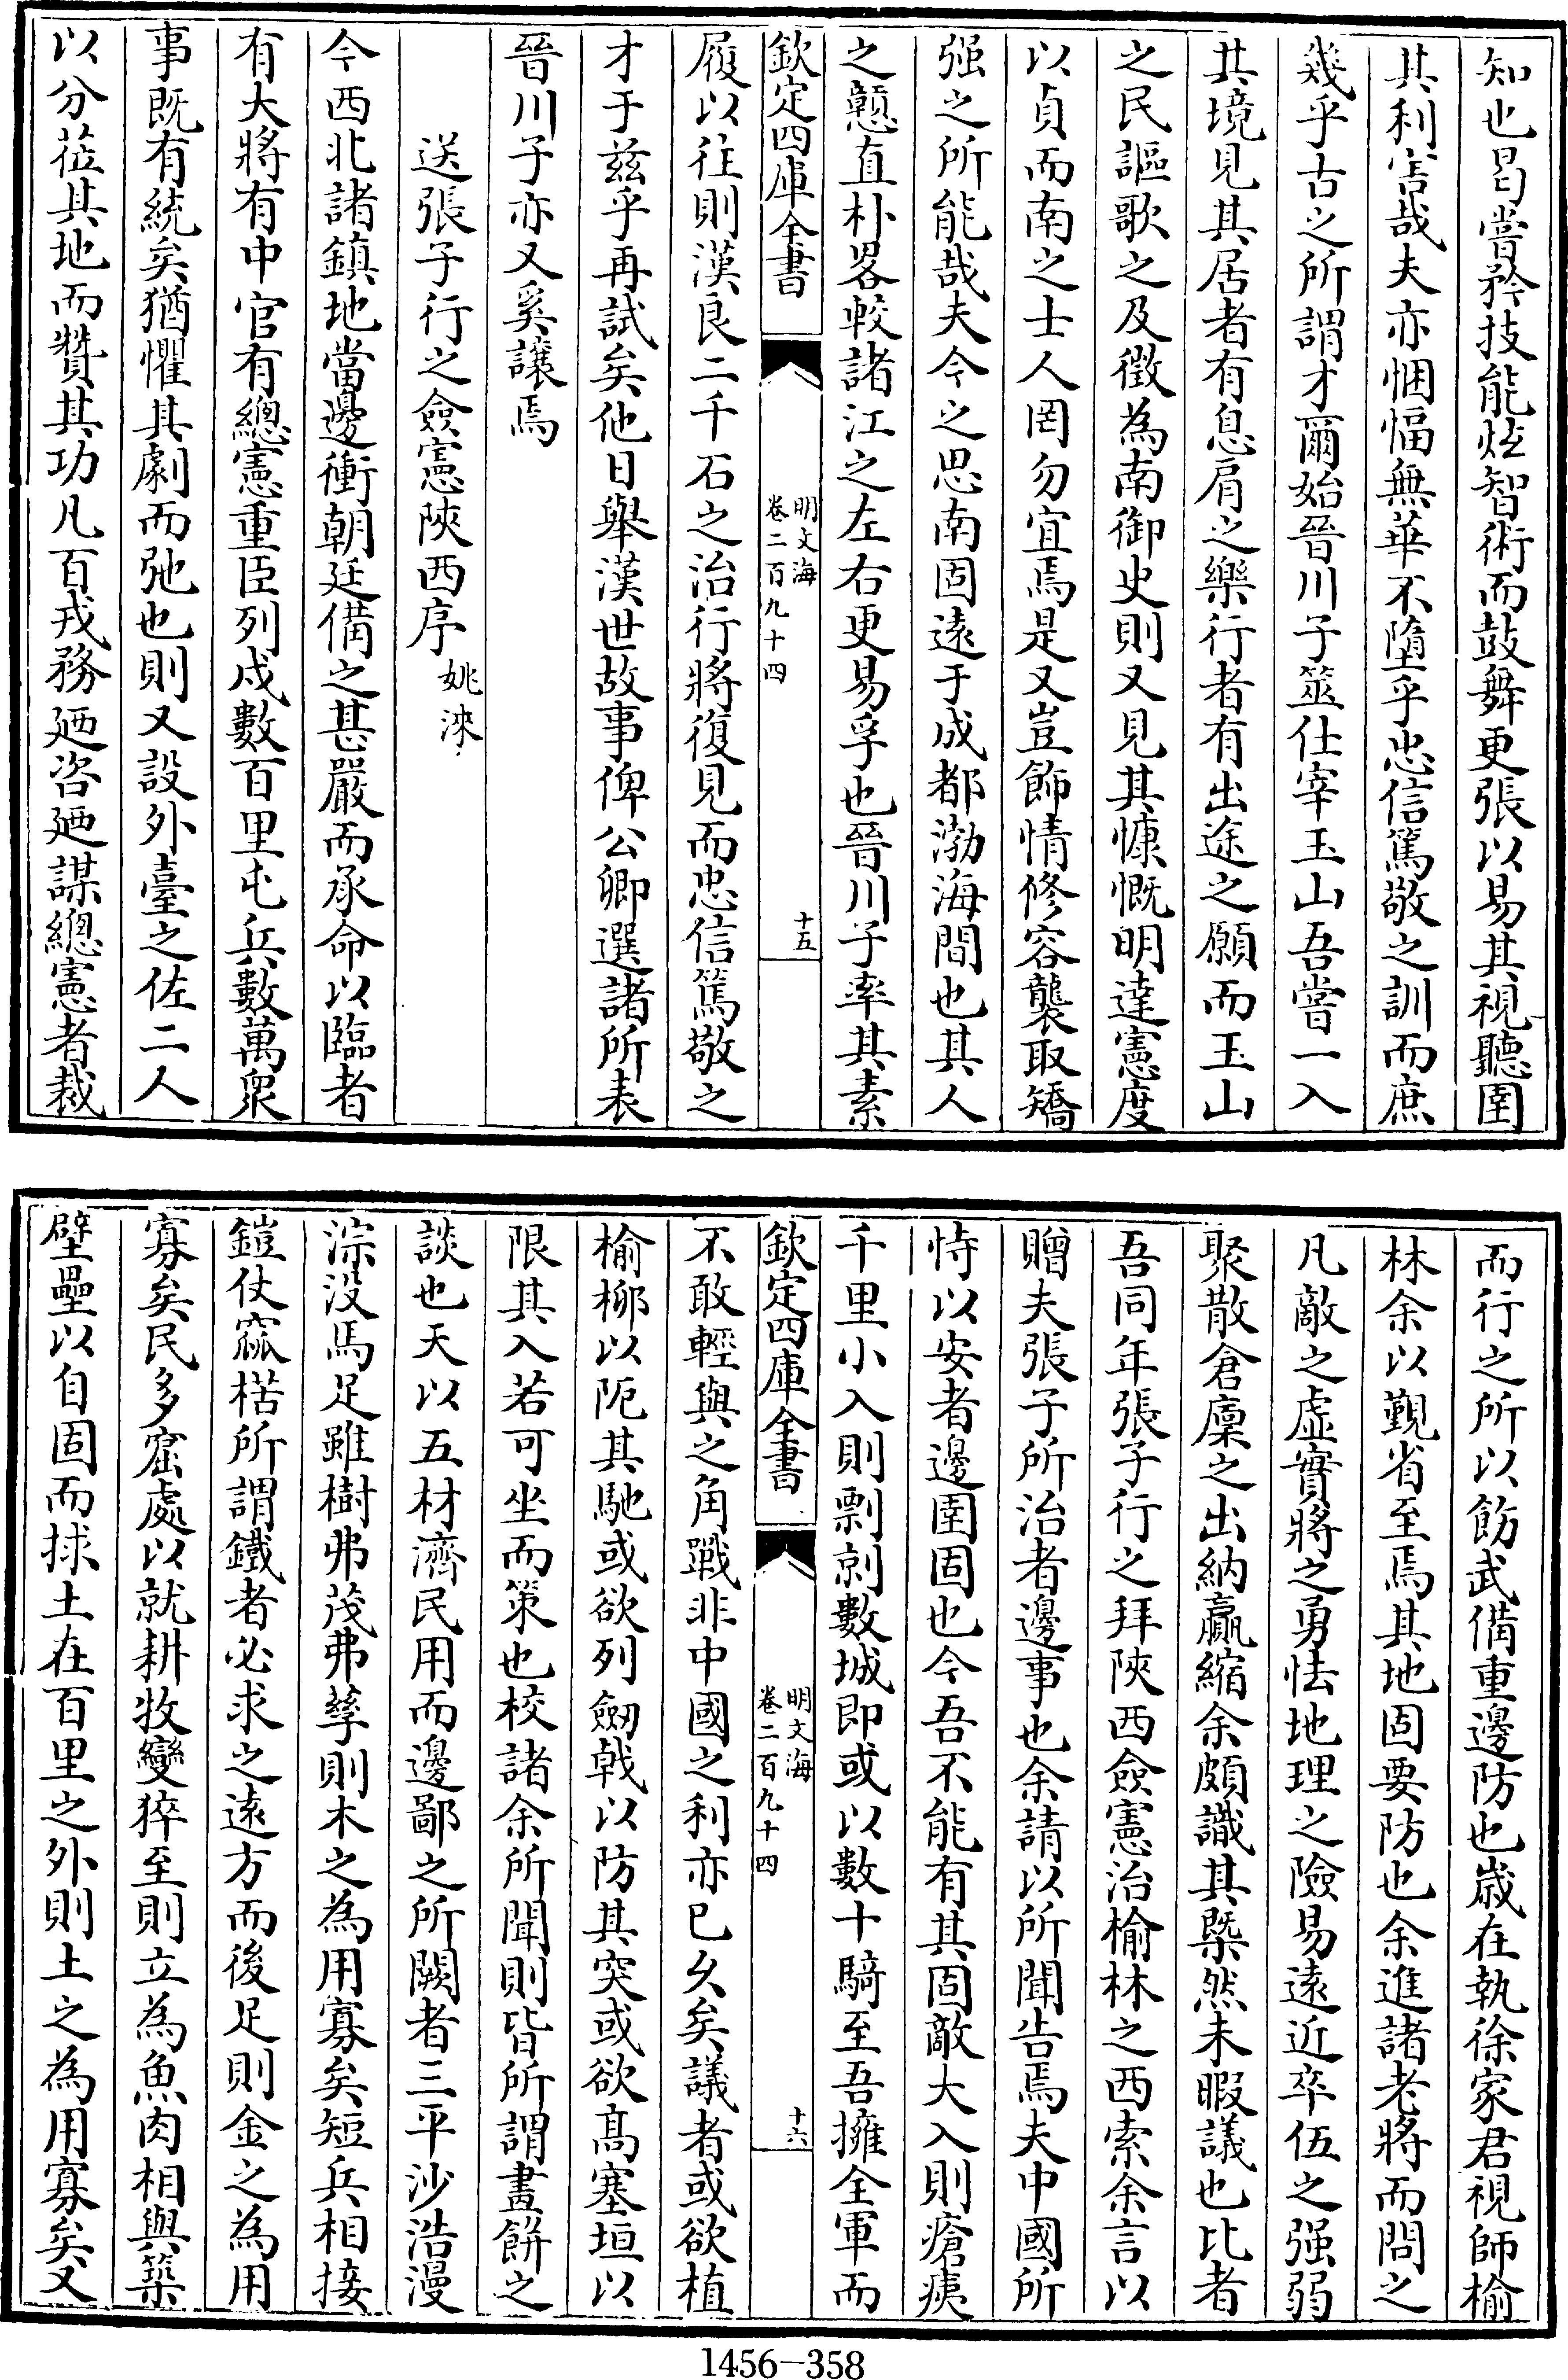 知也曷嘗矜技能炫智術而鼓舞更張以易其視聽圉
其利害哉夫亦悃愊無華不墮乎忠信篤敬之訓而庶
幾乎古之所謂才爾始晉川子筮仕宰玉山吾嘗一入
其境見其居者有息肩之樂行者有出途之願而玉山
之民謳歌之及徵為南御史則又見其慷慨明達憲度
以貞而南之士人罔勿宜焉是又豈飾情修容襲取矯
强之所能哉夫今之思南固遠于成都渤海間也其人
之戇直朴畧較諸江之左右更易孚也晉川子率其素
欽定四庫全書
明文海
卷二百九十四
十五
履以往則漢良二千石之治行將復見而忠信篤敬之
才于兹乎再試矣他日舉漢世故事俾公卿選諸所表
晉川子亦又奚讓焉
送張子行之僉憲陜西序
姚淶
今西北諸鎮地當邊衝朝廷備之甚嚴而承命以臨者
有大將有中官有總憲重臣列戍數百里屯兵數萬衆
事既有統矣猶懼其劇而弛也則又設外臺之佐二人
以分莅其地而贊其功凡百戎務廼咨廼謀總憲者裁
而行之所以飭武備重邊防也歲在執徐家君視師榆
林余以覲省至焉其地固要防也余進諸老將而問之
凡敵之虛實將之勇怯地理之險易遠近卒伍之强弱
聚散倉廩之出納贏縮余頗識其槩然未暇議也比者
吾同年張子行之拜陜西僉憲治榆林之西索余言以
贈夫張子所治者邊事也余請以所聞告焉夫中國所
恃以安者邊圉固也今吾不能有其固敵大入則瘡痍
千里小入則剽剠數城即或以數十騎至吾擁全軍而
欽定四庫全書
明文海
卷二百九十四
十六
不敢輕與之角戰非中國之利亦已久矣議者或欲植
榆栁以阨其馳或欲列劒戟以防其突或欲高塞垣以
限其入若可坐而策也校諸余所聞則皆所謂畫餅之
談也天以五材濟民用而邊鄙之所闕者三平沙浩漫
淙没馬足雖樹弗茂弗孳則木之為用寡矣短兵相接
鎧仗窳楛所謂鐵者必求之遠方而後足則金之為用
寡矣民多窟處以就耕牧變猝至則立為魚肉相與築
壁壘以自固而捄土在百里之外則土之為用寡矣又
1456-358